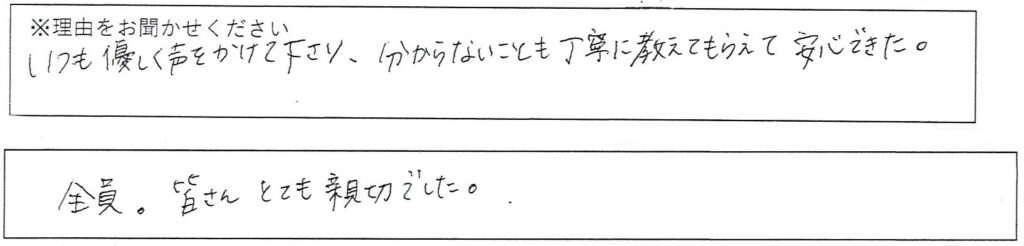 ※理由をお聞かせください
いつも優しく声をかけて下さり、分からないことも丁寧に教えてもらえて安心できた。
全員。皆さんとても親切でした。